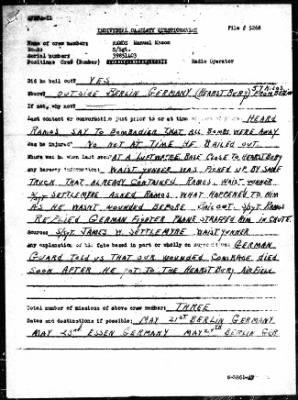 INDIVIDUAL CASUALTY QUESTIONNAIRE
File # 5268
Name of crew member: RAMOS Manuel
Rank: S/Sgt.
Serial number: 39851403
Position: Crew (Bomber) Radio Operator
Did he bail out? YES
Where? OUTSIDE BERLIN GERMANY (HEARDTBURG)
If not, why not?
Last contact or conversation just prior to or at time of HEARD
RAMOS SAY TO BOMBADIER THAT ALL BOMBS WERE AWAY
Was he injured? NO NOT AT TIME HE BAILED OUT
Where was he when last seen? AT A LUFTWAFFE BASE CLOSE TO HEARDTBURG
Any hearsay information: WAIST GUNNER WAS PICKED UP BY SAME
TRUCK THAT ALREADY CONTAINED RAMOS. WAIST GUNNER
SETTLEMYRE ASKED RAMOS WHAT HAPPENED TO HIM
AS HE WASN'T WOUNDED BEFORE BAILOUT. S/SGT RAMOS
REPLIED GERMAN FIGHTER PLANE STRAFFED HIM IN CHUTE.
Source: S/SGT. JAMES W. SETTLEMYRE WAIST GUNNER
Any explanation of his fate based in part or wholly on supposition: GERMAN
GUARD TOLD US THAT OUR WOUNDED COMRADE DIED
SOON AFTER HE GOT TO THE HEARDTBURG AIRFIELD
Total number of missions of above crew member: THREE
Dates and destinations if possible: MAY 21ST BERLIN GERMANY
MAY 23RD ESSEN GERMANY MAY BERLIN GER